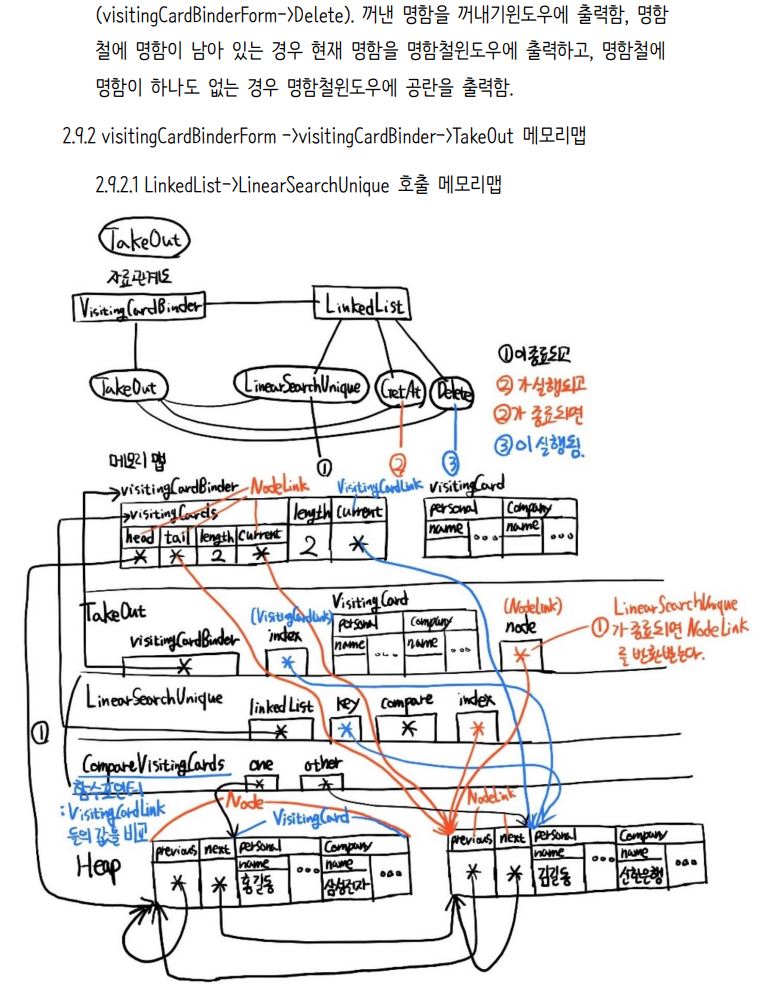 (visitingCardBinderForm->Delete). 꺼낸 명함을 꺼내기윈도우에 출력함, 명함
철에 명함이 남아 있는 경우 현재 명함을 명함철윈도우에 출력하고, 명함철에
명함이 하나도 없는 경우 명함철윈도우에 공란을 출력함.
2.9.2 visitingCardBinderForm ->visitingCardBinder->TakeOut 메모리맵
2.9.2.1 LinkedList->LinearSearchUnique 호출 메모리맵
TakeOut
자료관계도
VisitingCardBinder
LinkedList
TakeOut
LinearSearchUnique
GetAt
Delete
①이 종료되고
②가 실행되고
②가 종료되면
③이 실행됨.
①
②
③
메모리 맵
visitingCardBinder
NodeLink
VisitingCardLink
visitingCard
visitingCards
length
current
personal
Company
head
tail
length
current
name
...
name
...
*
*
2
*
2
*
TakeOut
visitingCardBinder
*
(VisitingCardLink)
index
*
VisitingCard
personal
Company
name
...
name
...
(NodeLink)
node
*
LinearSearchUnique
①가 종료되면 NodeLink
를 반환받는다.
①
LinearSearchUnique
linkedList
*
key
*
compare
*
index
*
CompareVisitingCards
one
*
other
*
함수포인터
:VisitingCardLink
들의 값을 비교
Node
VisitingCard
NodeLink
Heap
previous
next
personal
Company
name
...
name
...
*
*
홍길동
삼성전자
previous
next
personal
Company
name
...
name
...
*
*
김길동
신한은행